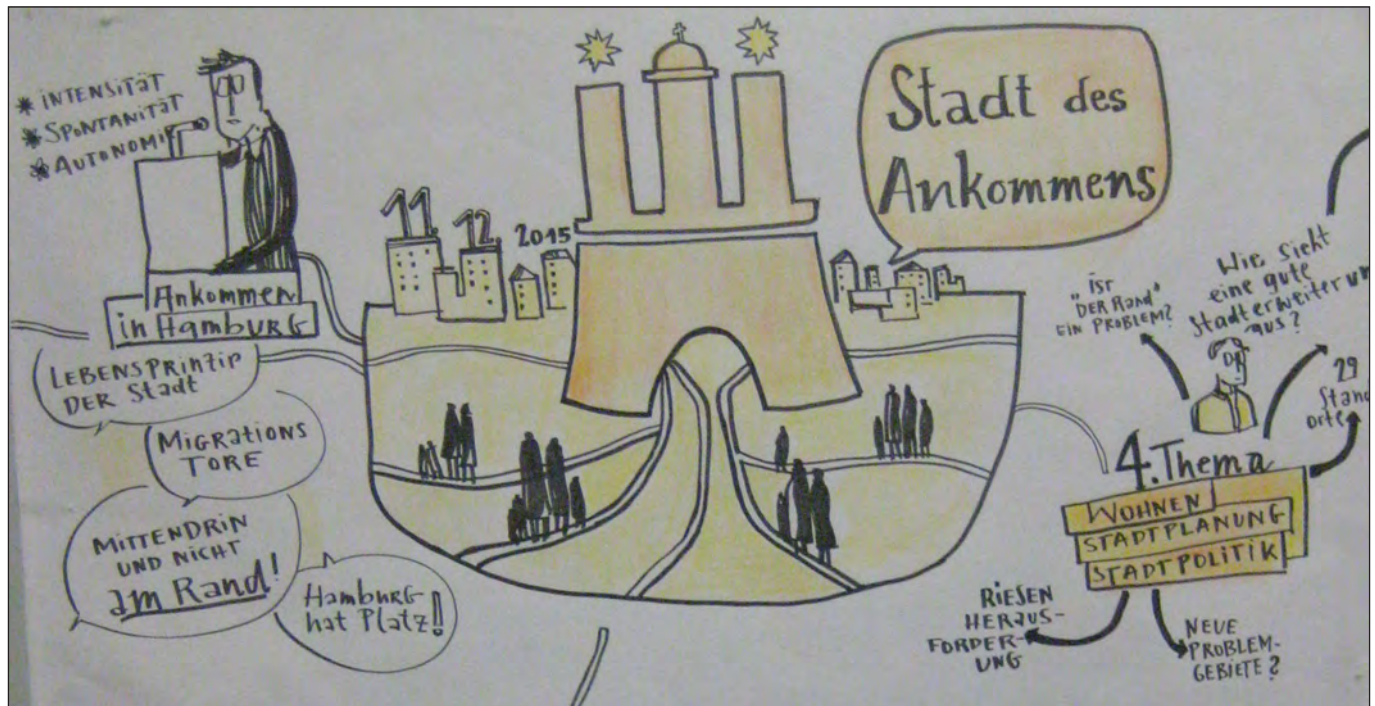 * INTENSITÄT
* SPONTANITÄT
* AUTONOMIE
Ankommen
in Hamburg
LEBENSPRINZIP
DER Stadt
MIGRATIONS
TORE
MITTENDRIN
UND NICHT
am Rand!
Hamburg
hat Platz!!
11.
12.
2015
Stadt des
Ankommens
"IST
DER RAND"
EIN PROBLEM?
Wie sieht
eine gute
Stadterweiterun
aus?
29
Stand
orte
4. Thema
WOHNEN
STADTPLANUNG
STADTPOLITIK
RIESEN
HERAUS-
FORDER-
UNG
NEUE
PROBLEM-
GEBIETE?